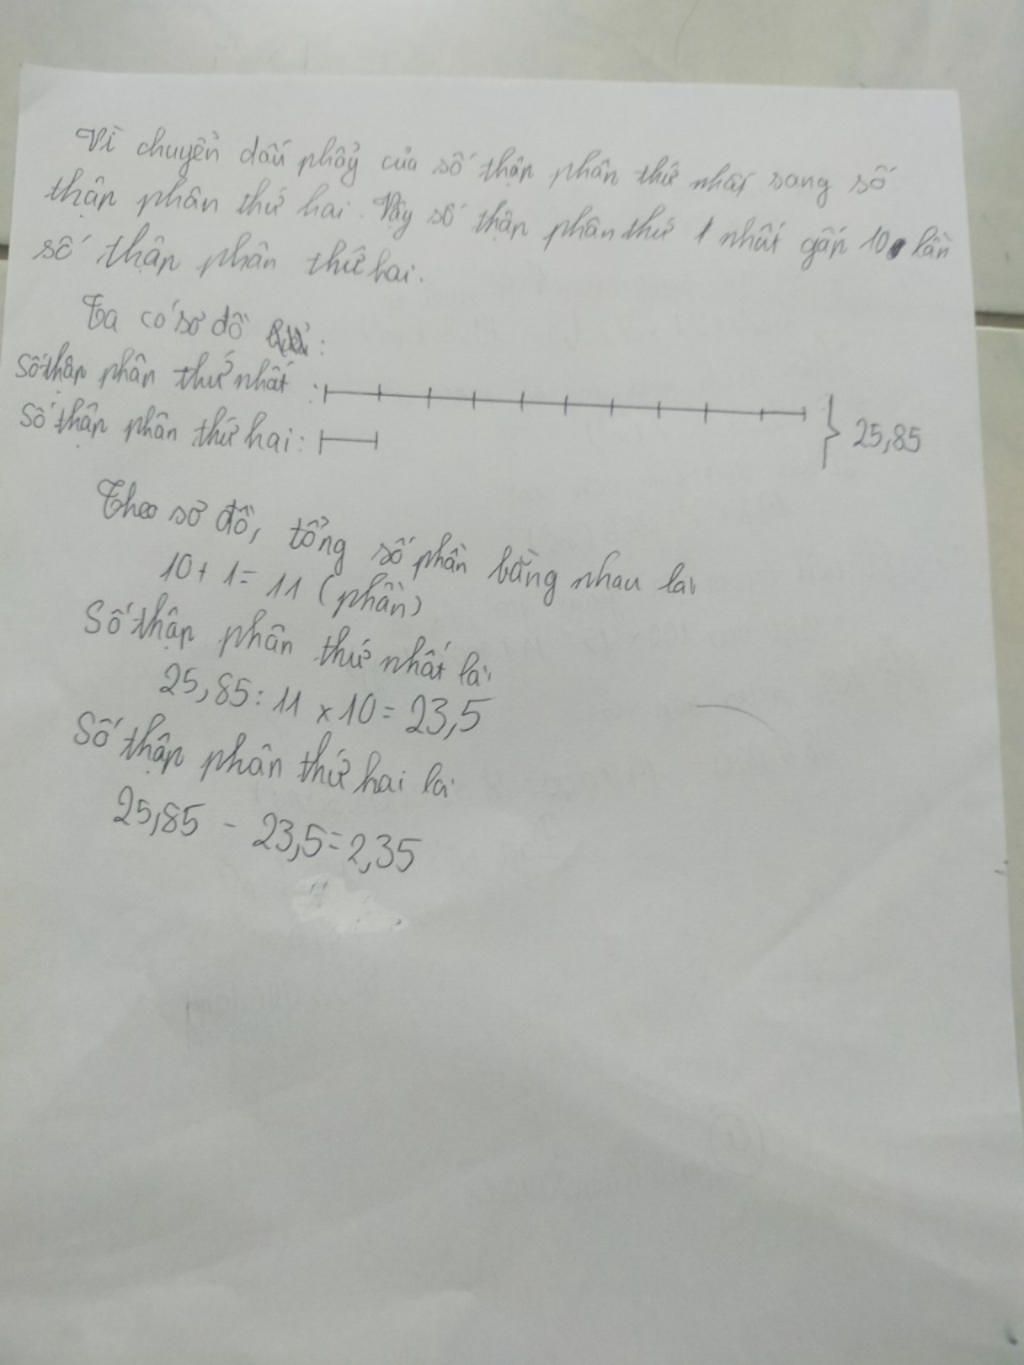 Vì chuyển dấu phẩy của số thập phân thứ nhất sang số
thập phân thứ hai. Vậy số thập phân thứ 1 nhất gấp 10 lần
số thập phân thứ hai.
Ta có sơ đồ :
Số thập phân thứ nhất :
Số thập phân thứ hai :
} 25,85
Theo sơ đồ, tổng số phần bằng nhau là
10 + 1 = 11 (phần)
Số thập phân thứ nhất là
25,85 : 11 x 10 = 23,5
Số thập phân thứ hai là
25,85 - 23,5 = 2,35